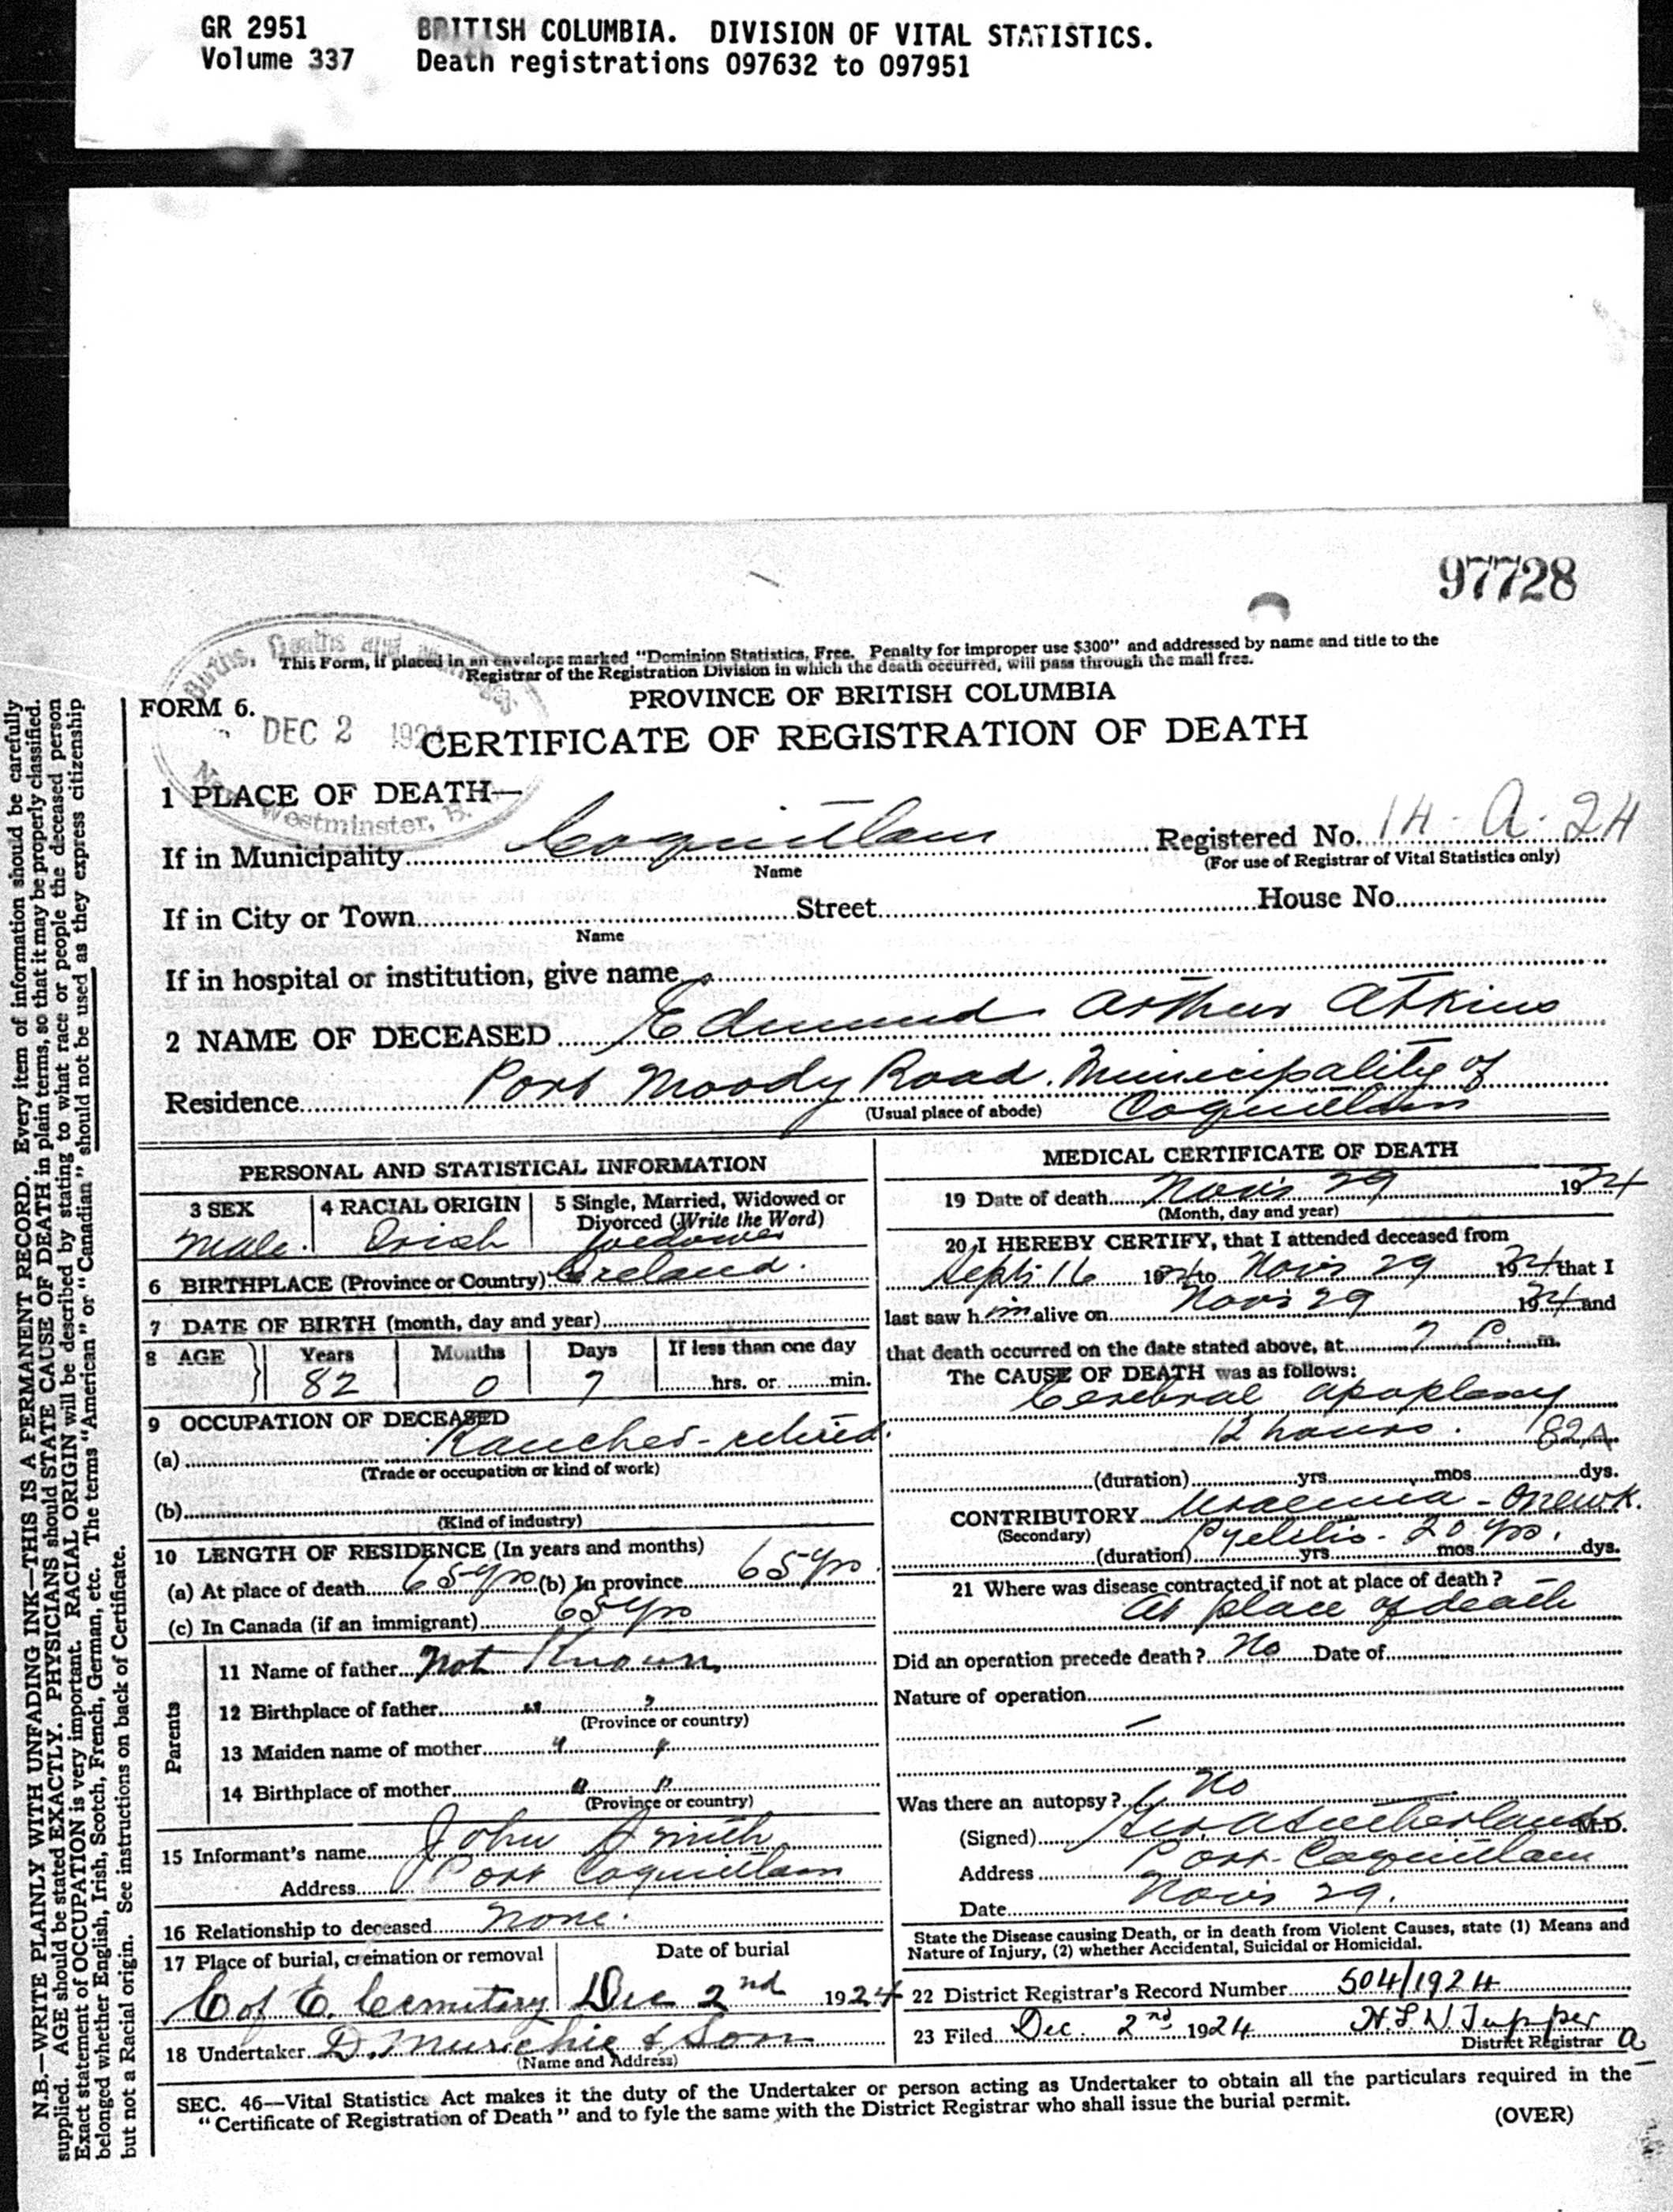 GR 2951 BRITISH COLUMBIA. DIVISION OF VITAL STATISTICS.
Volume 337 Death registrations 097632 to 097951
97728
Births, Deaths and
DEC 2 192
New Westminster, B.
This Form, if placed in an envelope marked "Dominion Statistics, Free. Penalty for improper use $300" and addressed by name and title to the
Registrar of the Registration Division in which the death occurred, will pass through the mail free.
PROVINCE OF BRITISH COLUMBIA
FORM 6.
CERTIFICATE OF REGISTRATION OF DEATH
1 PLACE OF DEATH—
If in Municipality Coquitlam Registered No. 14-A-24
Name (For use of Registrar of Vital Statistics only)
If in City or Town Street House No.
Name
If in hospital or institution, give name
2 NAME OF DECEASED Edmund Arthur Atkins
Residence Port Moody Road. Municipality of
(Usual place of abode) Coquitlam
PERSONAL AND STATISTICAL INFORMATION
3 SEX 4 RACIAL ORIGIN 5 Single, Married, Widowed or
Divorced (Write the Word)
Male. Irish Widower
6 BIRTHPLACE (Province or Country) Ireland.
7 DATE OF BIRTH (month, day and year)
8 AGE Years Months Days If less than one day
82 0 7 hrs. or min.
9 OCCUPATION OF DECEASED
(a) Rancher - retired.
(Trade or occupation or kind of work)
(b)
(Kind of industry)
10 LENGTH OF RESIDENCE (In years and months)
(a) At place of death 65 yrs (b) In province 65 yrs.
(c) In Canada (if an immigrant) 65 yrs
Parents
11 Name of father Not Known
12 Birthplace of father " "
(Province or country)
13 Maiden name of mother " "
14 Birthplace of mother " "
(Province or country)
15 Informant's name John Smith
Address Port Coquitlam
16 Relationship to deceased None.
17 Place of burial, cremation or removal Date of burial
C of E. Cemitary Dec 2nd 1924
18 Undertaker D. Murchie & Son
(Name and Address)
MEDICAL CERTIFICATE OF DEATH
19 Date of death Nov's 29 1924
(Month, day and year)
20 I HEREBY CERTIFY, that I attended deceased from
Sept. 16 1924 to Nov's 29 1924 that I
last saw him alive on Nov's 29 1924 and
that death occurred on the date stated above, at 7 P. m.
The CAUSE OF DEATH was as follows:
Cerebral apoplexy
12 hours. 82A
(duration) yrs. mos. dys.
CONTRIBUTORY Uraemia - One wk.
(Secondary) Pyelitis - 20 yrs.
(duration) yrs. mos. dys.
21 Where was disease contracted if not at place of death?
At place of death
Did an operation precede death? No Date of
Nature of operation
—
Was there an autopsy? No
(Signed) Geo A Sutherland M.D.
Address Port Coquitlam
Date Nov's 29.
State the Disease causing Death, or in death from Violent Causes, state (1) Means and
Nature of Injury, (2) whether Accidental, Suicidal or Homicidal.
22 District Registrar's Record Number 504/1924
23 Filed Dec. 2nd 1924 H.L.W. Tupper
District Registrar a
SEC. 46—Vital Statistics Act makes it the duty of the Undertaker or person acting as Undertaker to obtain all the particulars required in the
"Certificate of Registration of Death" and to fyle the same with the District Registrar who shall issue the burial permit.
(OVER)
N.B.—WRITE PLAINLY WITH UNFADING INK—THIS IS A PERMANENT RECORD. Every item of information should be carefully
supplied. AGE should be stated EXACTLY. PHYSICIANS should STATE CAUSE OF DEATH in plain terms, so that it may be properly classified.
Exact statement of OCCUPATION is very important. RACIAL ORIGIN will be described by stating to what race or people the deceased person
belonged whether English, Irish, Scotch, French, German, etc. The terms "American" or "Canadian" should not be used as they express citizenship
but not a Racial origin. See instructions on back of Certificate.